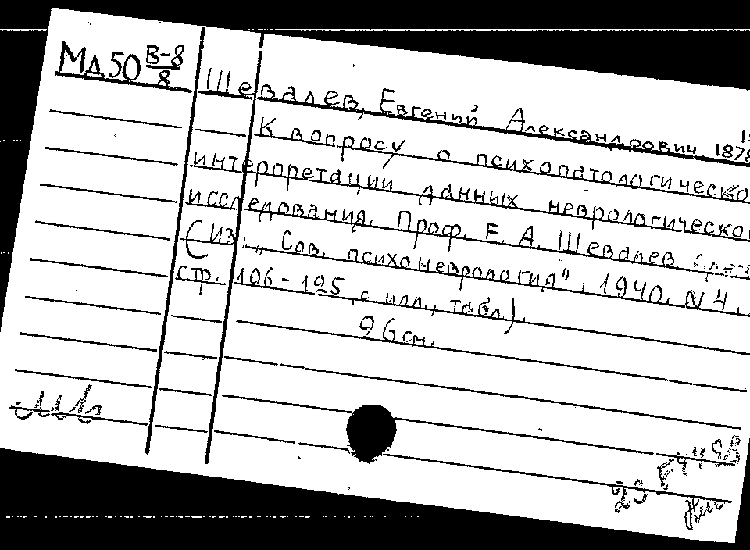 Мд50 В-8/8
Шевалев, Евгений Александрович, 1878
К вопросу о психопатологическо
интерпретации данных неврологическо
исследования. Проф. Е. А. Шевалев
(Из: „Сов. психоневрология", 1940, №4,
стр. 106-125 с илл., табл).
26см.